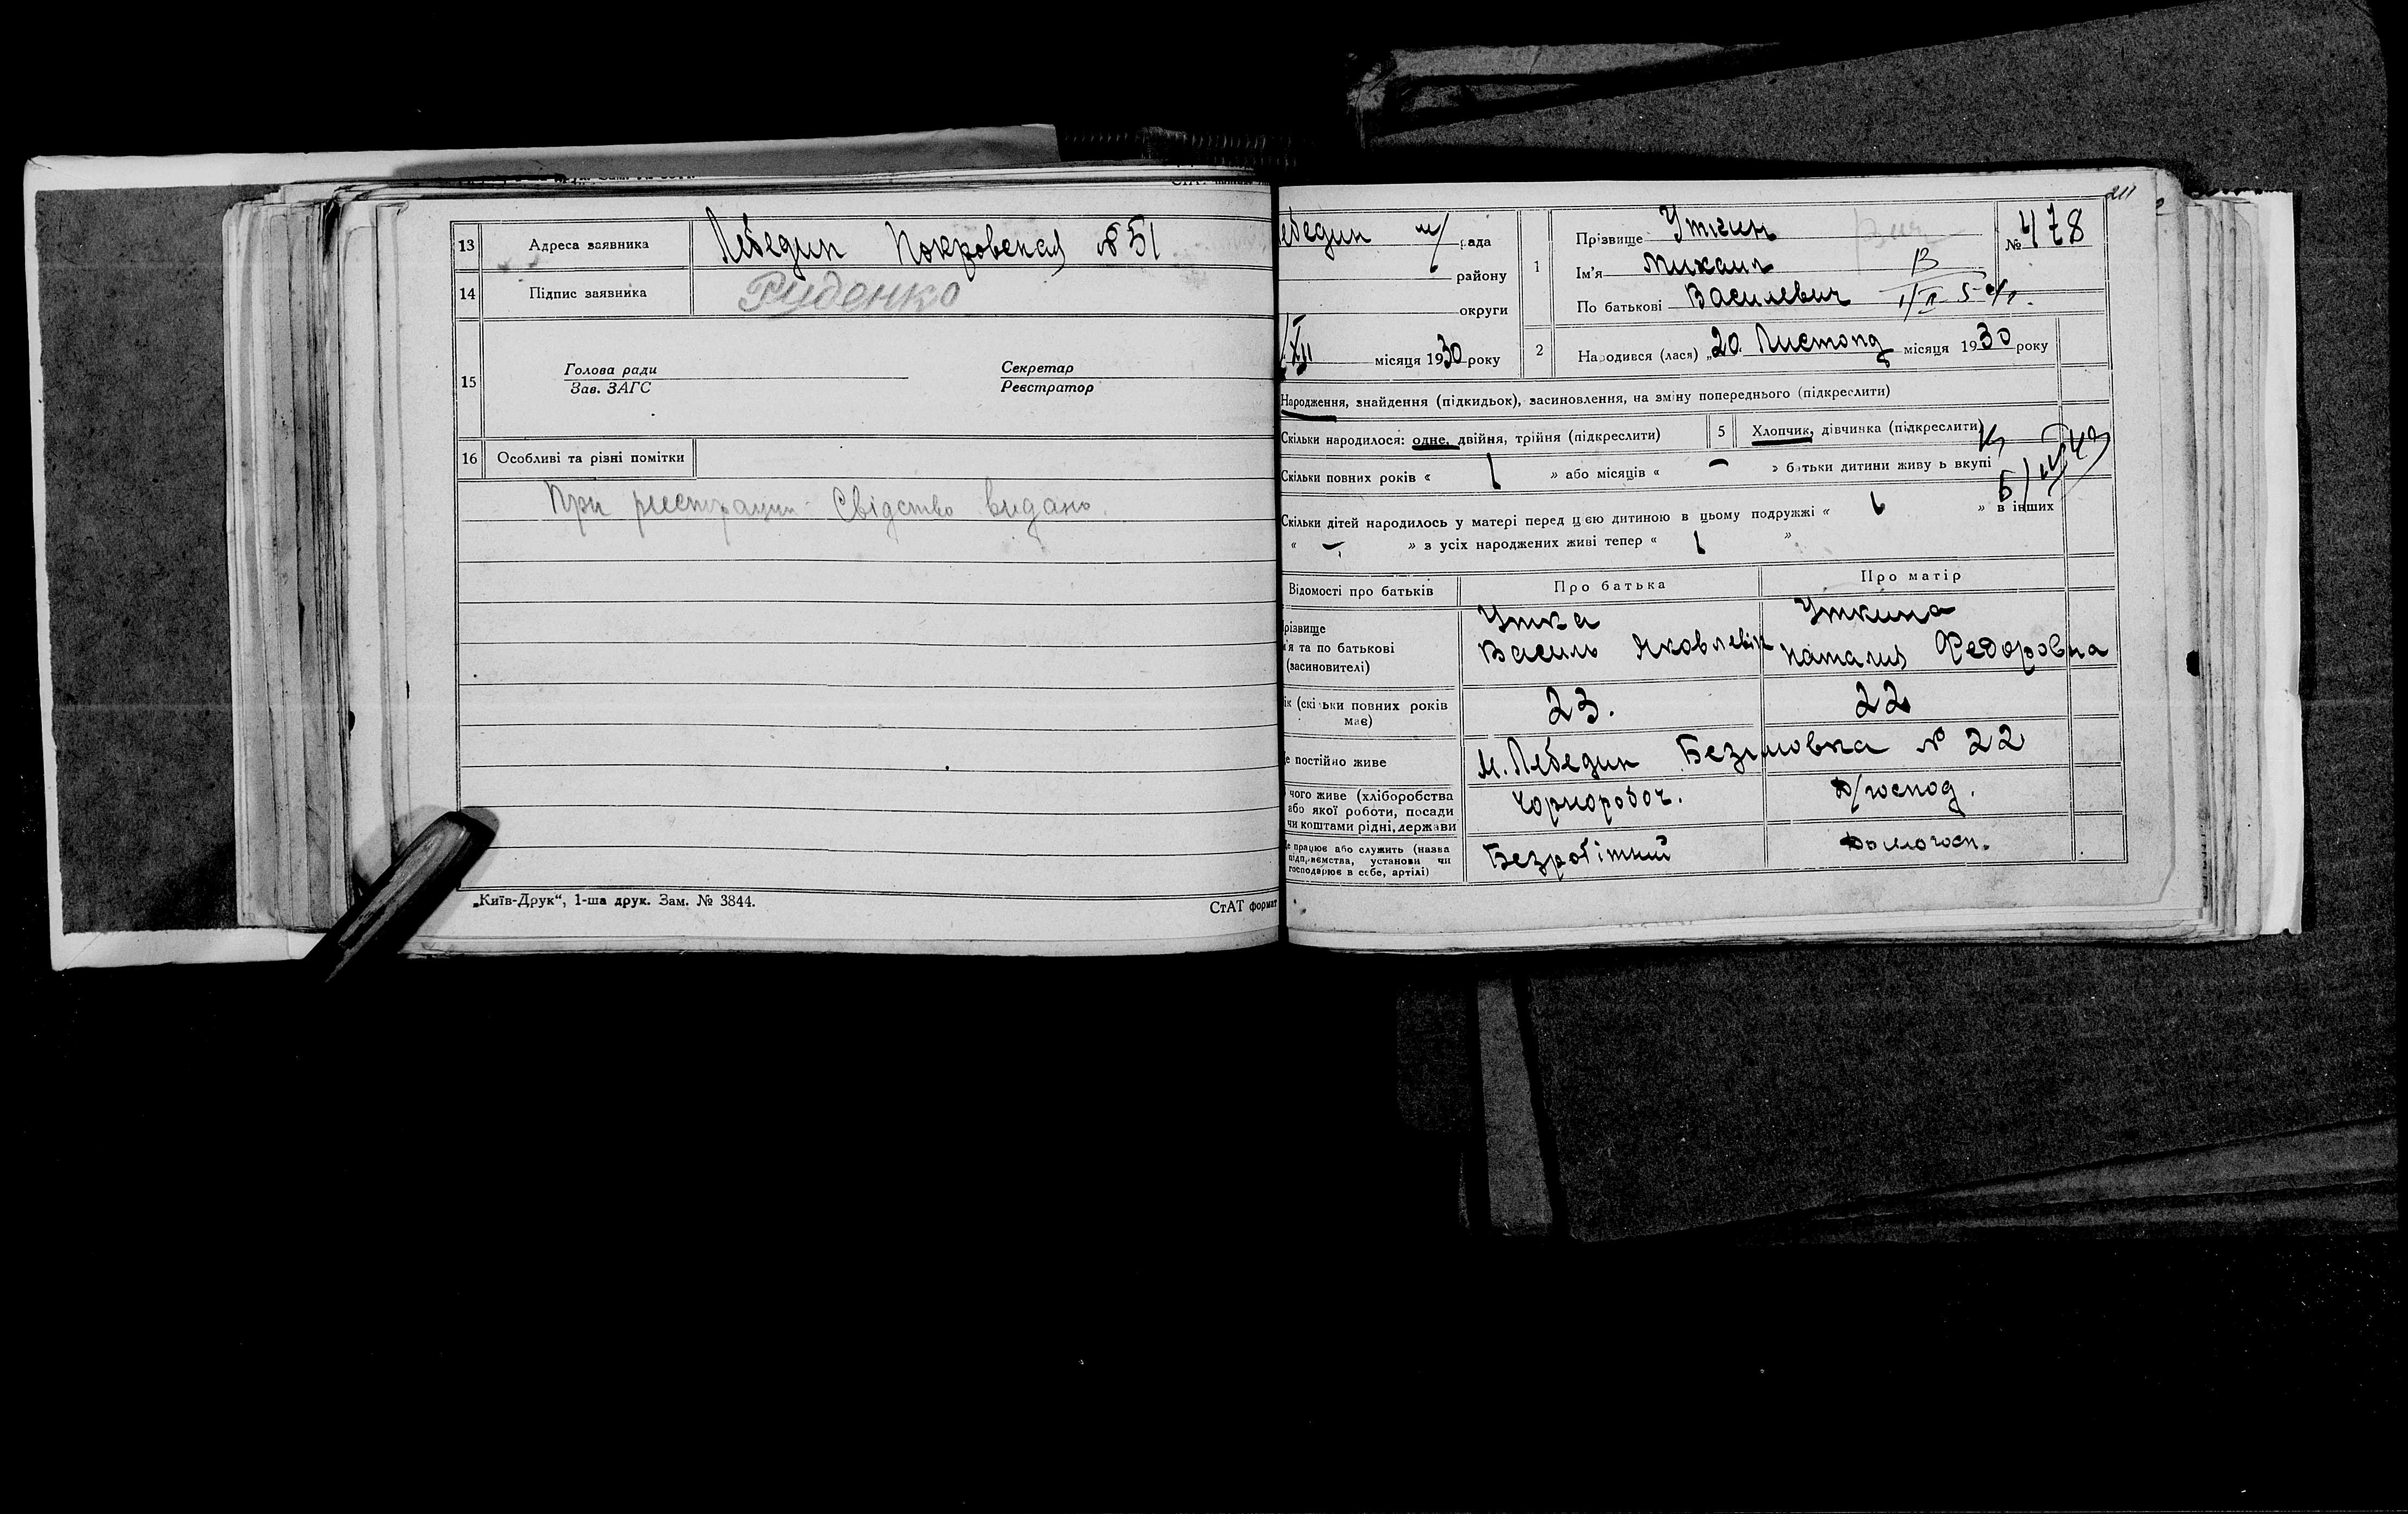 13 Адреса заявника Лебедин Покровская № 51
14 Підпис заявника Руденко
15 Голова ради Секретар
Зав. ЗАГС Реєстратор
16 Особливі та різні помітки
При реєстрации Свідство видано.
„Київ-Друк“, 1-ша друк. Зам. № 3844. СтАТ формат
211
ебедин м/ рада
району
округи
XII місяця 1930 року
1 Прізвище Уткин № 478
Ім'я Михаил
По батькові Василевич
2 Народився (лася) „20 Листопд місяця 1930 року
Народження, знайдення (підкидьок), засиновлення, на зміну попереднього (підкреслити)
Скільки народилося: одне, двійня, трійня (підкреслити) 5 Хлопчик, дівчинка (підкреслити)
Скільки повних років « 1 » або місяців « — » батьки дитини живуть вкупі
Скільки дітей народилось у матері перед цією дитиною в цьому подружжі « » в інших
« — » з усіх народжених живі тепер « »
Відомості про батьків Про батька Про матір
різвище Утка Уткина
я та по батькові Василь Яковлевіч Наталия Федоровна
(засиновителі)
ік (скільки повних років має) 23. 22
е постійно живе м. Лебедин Безимовка № 22
чого живе (хліборобства
або якої роботи, посади Чорнороboч. д/господ.
чи коштами рідні, держави
е працює або служить (назва
підприємства, установи чи Безробітний домогосп.
господарює в себе, артілі)